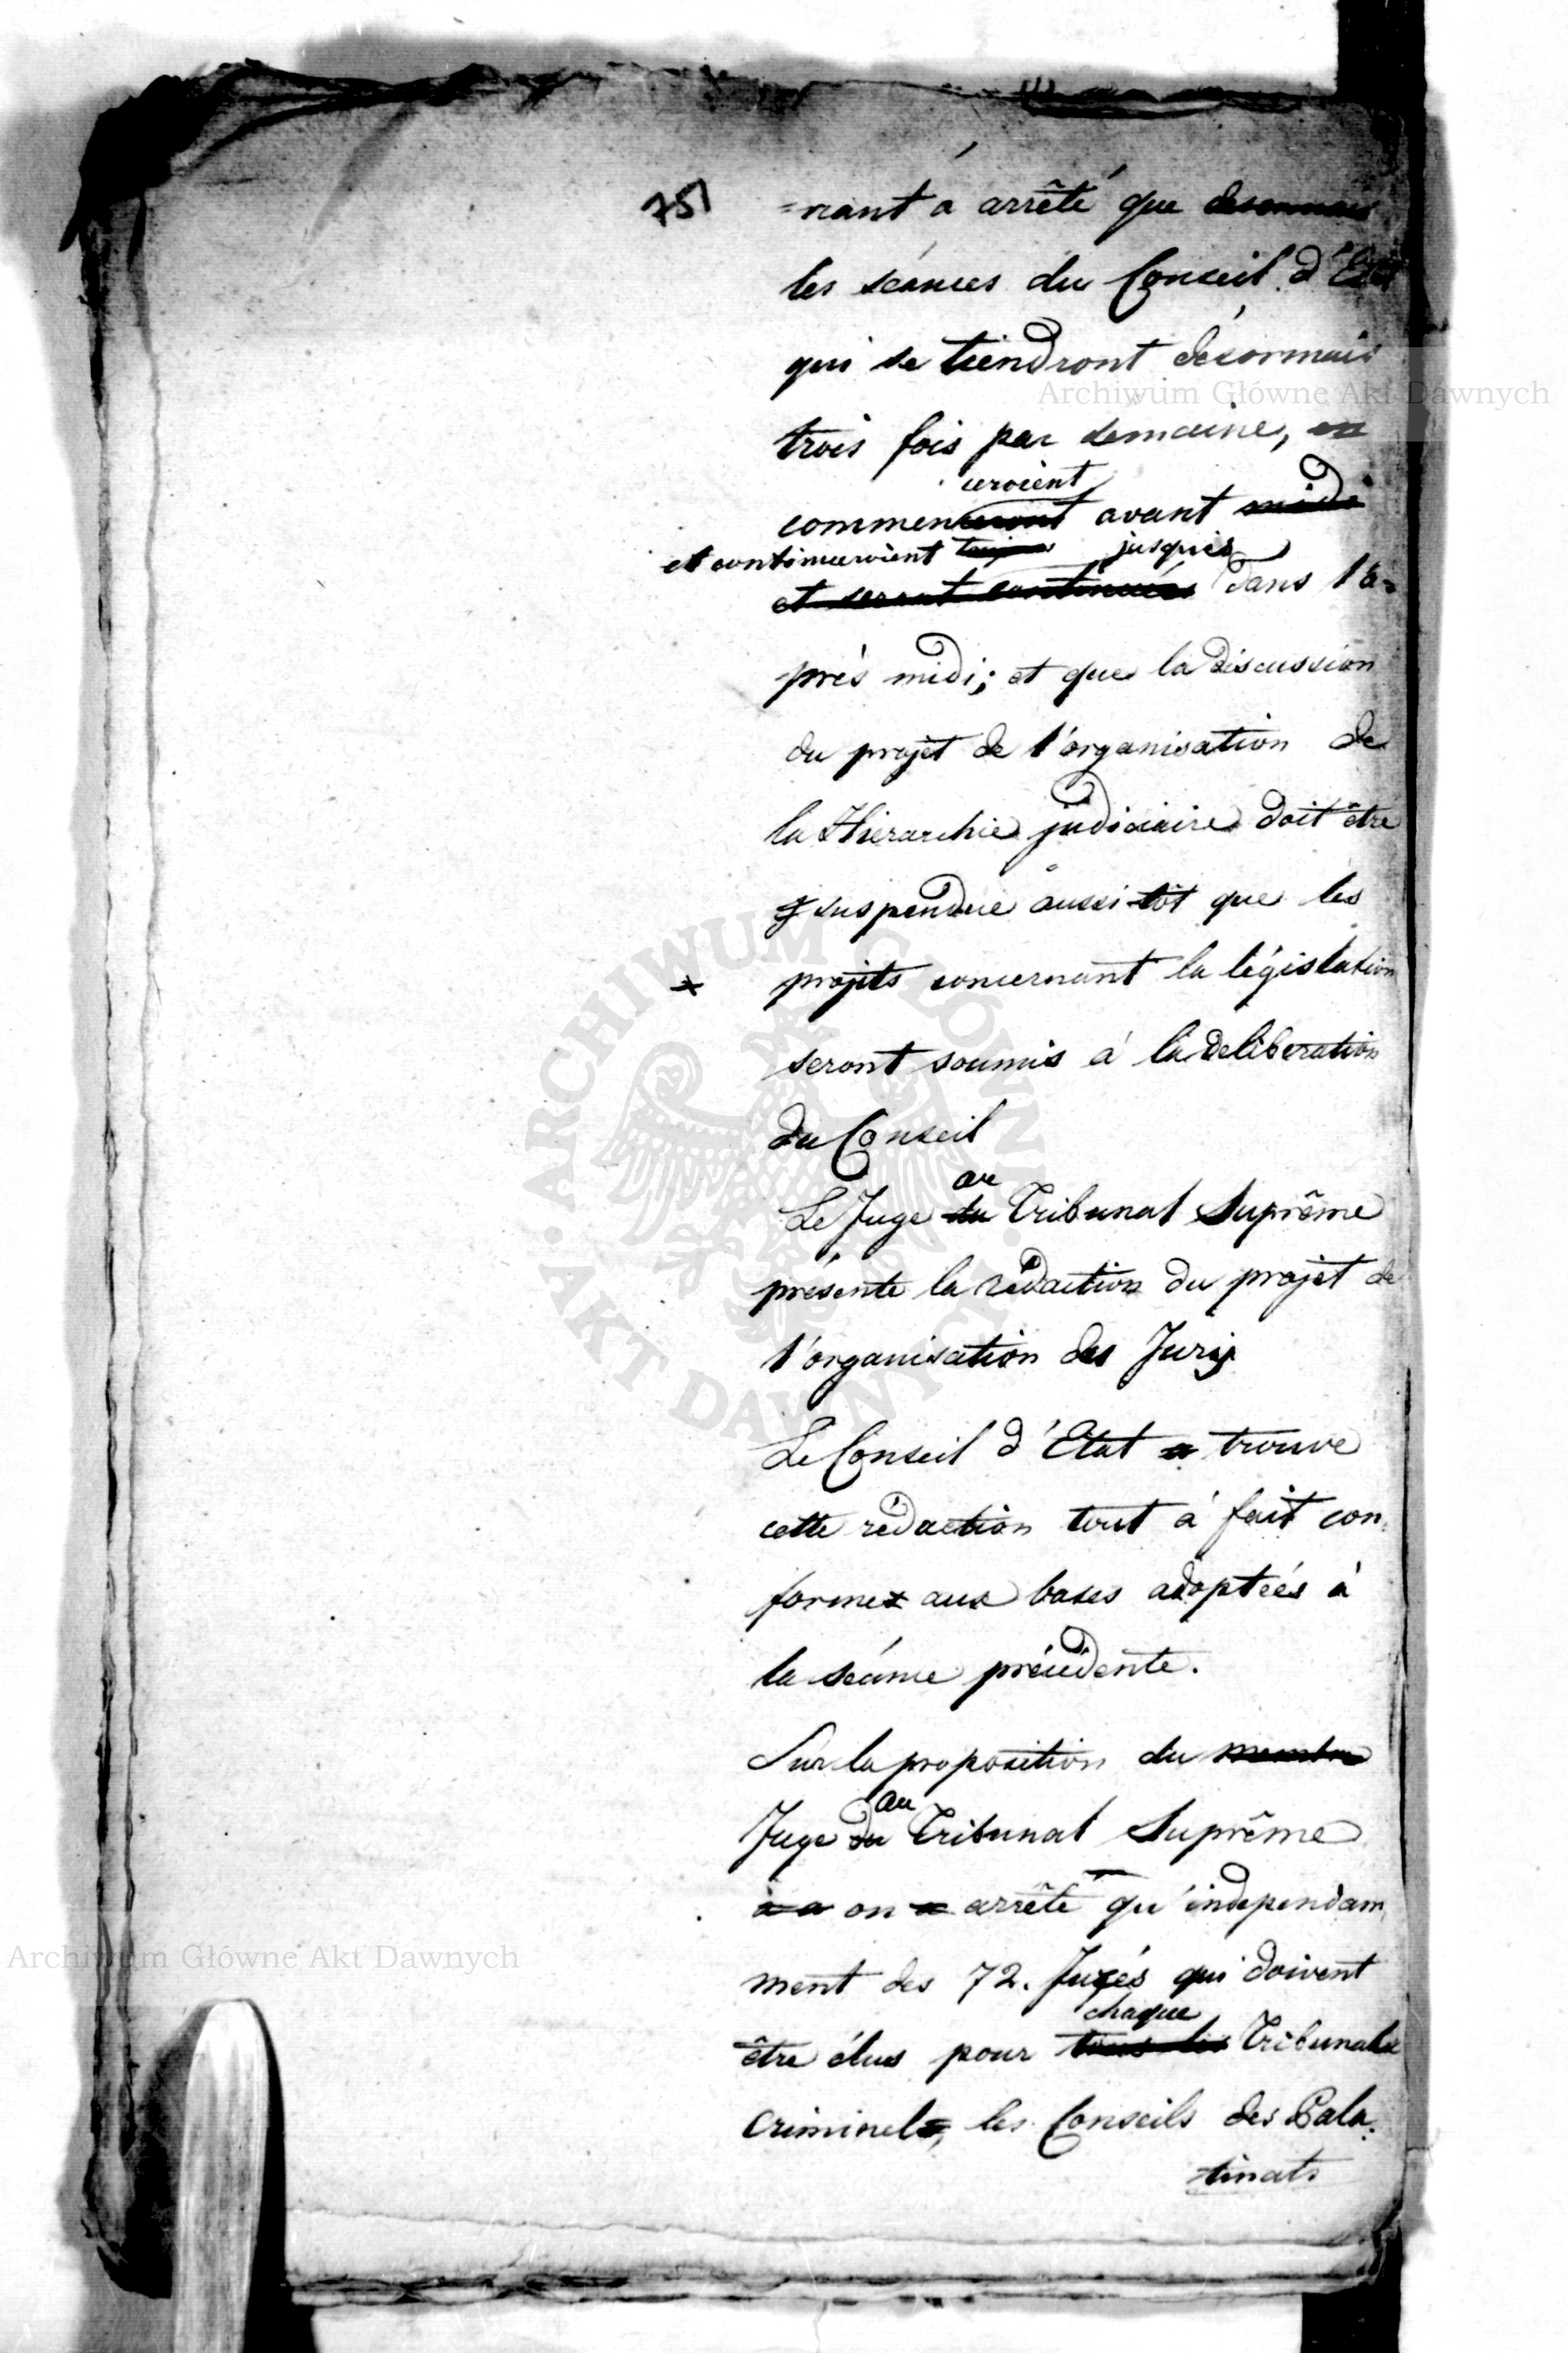 751
=nant a arrêté que desormais
les séances du Conseil d'Etat
qui se tiendront désormais
trois fois par semaine, en
ceroient
commenceront avant midi
et continueroient jusques
et seront continuées dans l'a=
près midi; et que la discussion
du projet de l'organisation de
la Hierarchie judiciaire doit être
suspendue aussi-tôt que les
projets concernant la législation
seront soumis à la deliberation
du Conseil
au
Le Juge du Tribunal Suprême
présente la rédaction du projet de
l'organisation des Jurij
Le Conseil d'Etat a trouvé
cette rédaction tout à fait con,
forme aux bases adoptées à
la séance précédente.
Sur la proposition du membre
au
Juge du Tribunal Suprême
on a arrêté qu'independam,
ment des 72. Jurés qui doivent
chaque
être élus pour tous les Tribunals
Criminels, les Conseils des Pala:
=tinats
Archiwum Główne Akt Dawnych
Archiwum Główne Akt Dawnych
ARCHIWUM GŁÓWNE · AKT DAWNYCH ·